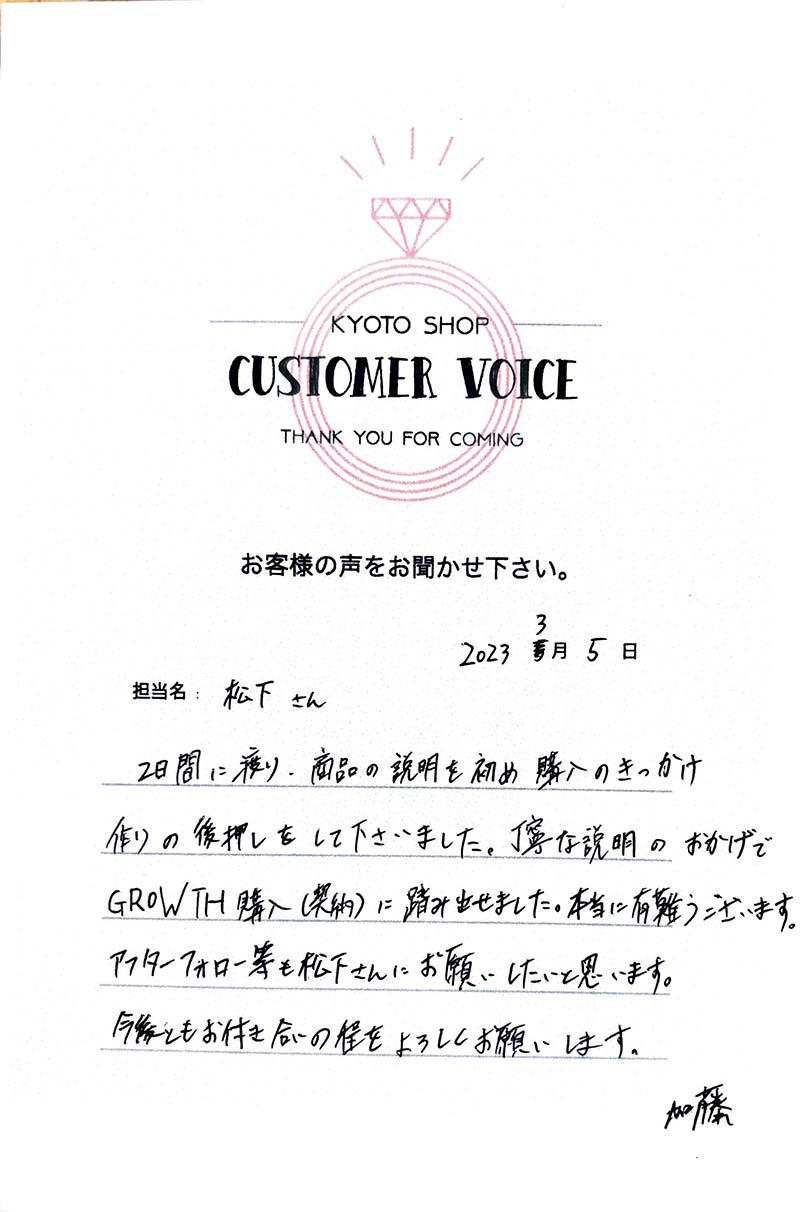 KYOTO SHOP
CUSTOMER VOICE
THANK YOU FOR COMING
お客様の声をお聞かせ下さい。
3
2023 月 5 日
担当名： 松下 さん
2日間に渡り、商品の説明を初め購入のきっかけ
作りの後押しをして下さいました。丁寧な説明のおかげで
GROWTH購入(契約)に踏み出せました。本当に有難うございます。
アフターフォロー等も松下さんにお願いしたいと思います。
今後ともお付き合いの程をよろしくお願いします。
加藤